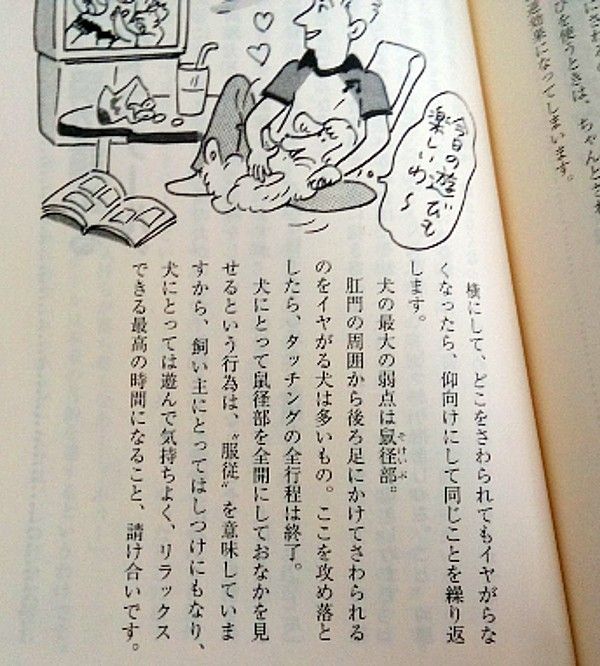 びを使うときは、ちゃんとさ
逆効果になってしまいます。
今日の遊びも
楽しいわ〜
横にして、どこをさわられてもイヤがらな
くなったら、仰向けにして同じことを繰り返
します。
犬の最大の弱点は鼠径部。
そけいぶ
肛門の周囲から後ろ足にかけてさわられる
のをイヤがる犬は多いもの。ここを攻め落と
したら、タッチングの全行程は終了。
犬にとって鼠径部を全開にしておなかを見
せるという行為は、〝服従〟を意味していま
すから、飼い主にとってはしつけにもなり、
犬にとっては遊んで気持ちよく、リラックス
できる最高の時間になること、請け合いです。